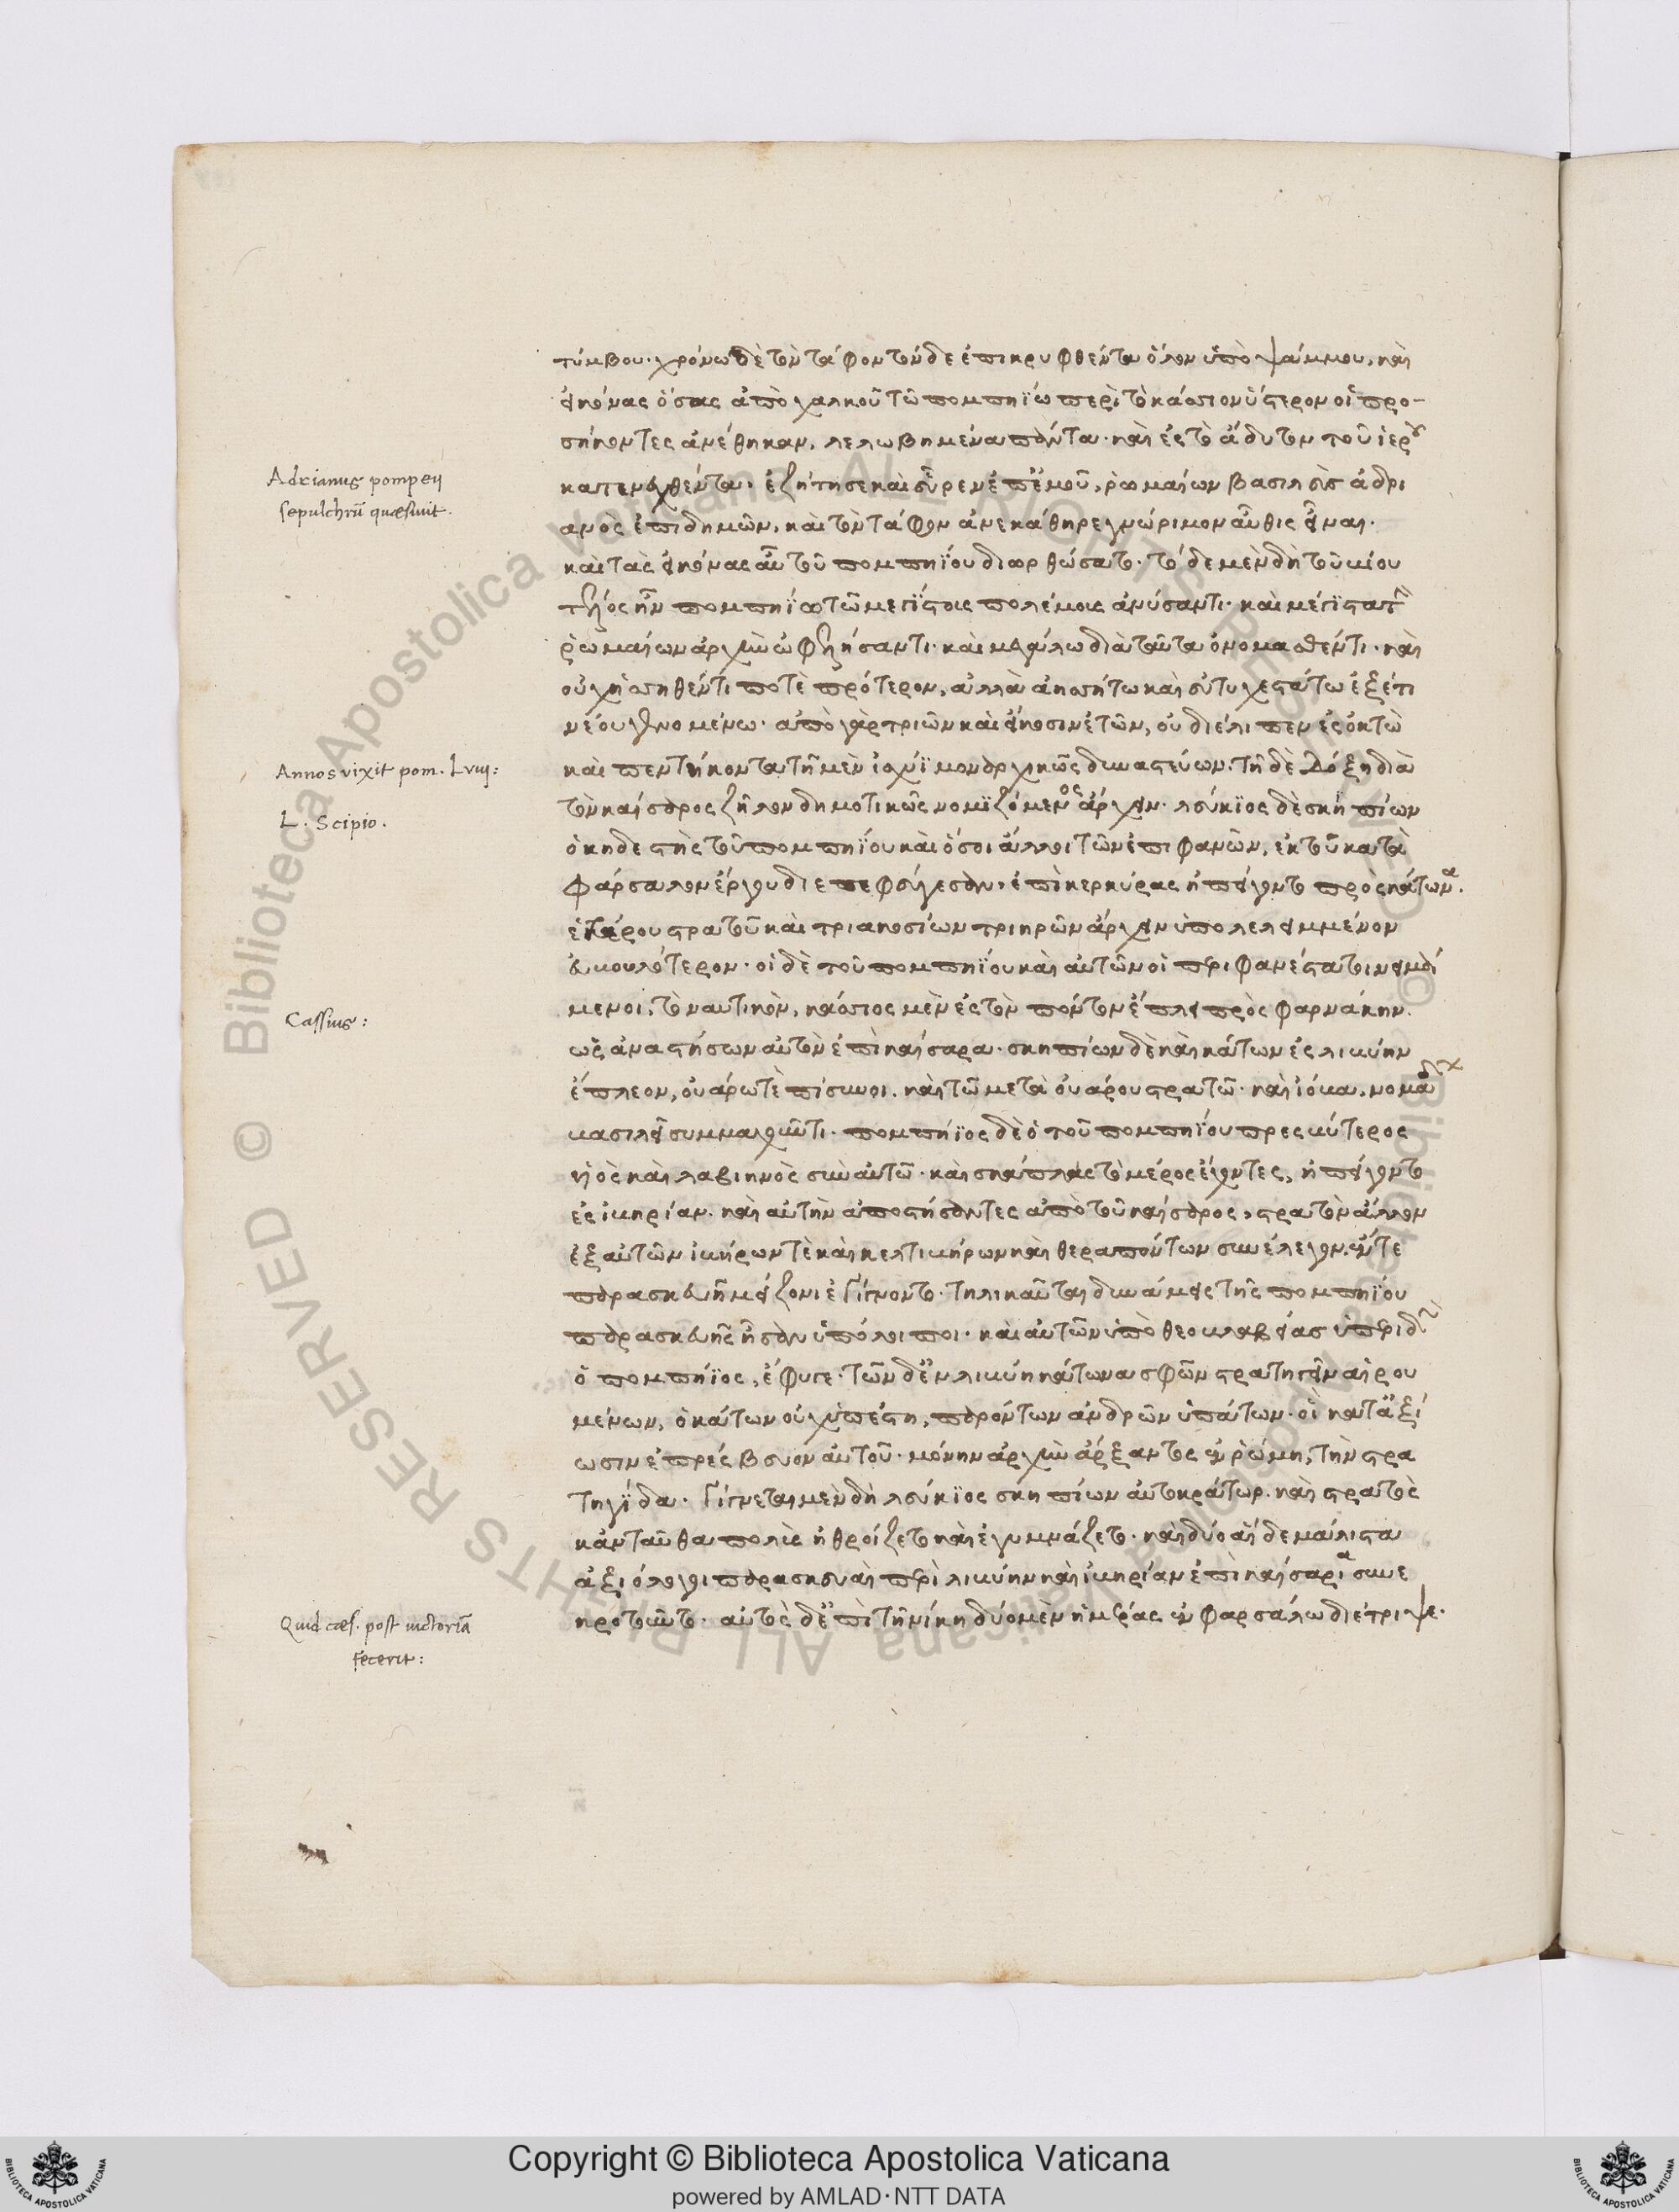 τύμβου· χρόνω δὲ τὸν τάφον τόνδε ἐπικρυφθέντα ὅλον ὑπὸ ψάμμου, καὶ
εἰκόνας ὅσας ἀπὸ χαλκοῦ τῶ πομπηΐω περὶ τὸ κάσιον ὕστερον οἱ προ-
σήκοντες ἀνέθηκαν, λελωβημένα πάντα· καὶ ἐς τὸ ἄδυτον τοῦ ἱεροῦ
Adrianus pompeij
sepulchrũ quæsiuit.
κατενεχθέντα· ἐζήτησε καὶ εὗρεν ἐπ' ἐμοῦ, ῥωμαίων βασιλεὺς ἀδρι
ανὸς ἐπιδημῶν, καὶ τὸν τάφον ἀνεκάθηρε γνώριμον αὖθις εἶναι·
καὶ τὰς εἰκόνας αὐτοῦ πομπηΐου διωρθώσατο· τόδε μὲν δὴ τοῦ βίου
τέλος ἦν πομπηΐω τῶ μεγίστοις πολέμοις ἀνύσαντι· καὶ μέγιστα τὴν
ῥωμαίων ἀρχὴν ὠφελήσαντι· καὶ μεγάλω διὰ ταῦτα ὀνομασθέντι· καὶ
οὐχ ἡσσηθέντι ποτὲ πρότερον, ἀλλὰ ἀησσήτω καὶ εὐτυχεστάτω ἐξέτι
νέου γενομένω· ἀπὸ γὰρ τριῶν καὶ εἴκοσιν ἐτῶν, οὐ διέλιπεν ἐς ὀκτὼ
Annos vixit pom. Lviij:
καὶ πεντήκοντα τῆ μὲν ἰσχύϊ μοναρχικῶς δυναστεύων· τῆ δὲ δόξη διὰ
L. Scipio.
τὸν καίσαρος ζῆλον δημοτικῶς νομϊζόμενος ἄρχειν· λεύκϊος δὲ σκηπίων
ὁ κηδεστὴς τοῦ πομπηΐου καὶ ὅσοι ἄλλοι τῶν ἐπιφανῶν, ἐκ τοῦ κατὰ
φάρσαλον ἔργου διεπεφεύγεσαν, ἐπὶ κερκύρας ἠπείγοντο πρὸς κάτωνα·
ἑτέρου στρατοῦ καὶ τριακοσίων τριηρῶν ἄρχειν ὑπολελειμμένον
εὐβουλότερον· οἱ δὲ τοῦ πομπηΐου καὶ αὐτῶν οἱ περιφανέστατοι νειμά
Cassius:
μενοι, τὸ ναυτικὸν, κάσσιος μὲν ἐς τὸν πόντον ἔπλει πρὸς φαρνάκην.
ὡς ἀναστήσων αὐτὸν ἐπὶ καίσαρα· σκηπίων δὲ καὶ κάτων ἐς λιβύην
ἔπλεον, οὐάρω τὲ πίσυνοι. καὶ τῶ μετὰ οὐάρου στρατῶ· καὶ ἰόβα, νομάδων
βασιλεῖ συμμαχοῦντι· πομπήϊος δὲ ὁ τοῦ πομπηΐου πρεσβύτερος
υἱὸς καὶ λαβιηνὸς σὺν αὐτῶ· καὶ σκάπλας τὸ μέρος ἔχοντες, ἠπείγοντο
ἐς ἰβηρίαν. καὶ αὐτὴν ἀποστήσαντες ἀπὸ τοῦ καίσαρος, στρατὸν ἄλλον
ἐξ αὐτῶν ἰβήρων τὲ καὶ κελτιβήρων καὶ θεραπόντων συνέλεγον. ἔν τε
παρασκευῆ μείζονι ἐγίγνοντο· τηλικαῦται δυνάμεις τῆς πομπηΐου
παρασκευῆς ἦσαν ὑπόλοιποι· καὶ αὐτῶν ὑπὸ θεοβλαβείας ὑπεριδὼν
ὁ πομπήϊος, ἔφυγε· τῶν δ' ἐν λιβύη κάτωνα σφῶν στρατηγεῖν αἱρου
μένων, ὁ κάτων οὐχ ὑπέστη, παρόντων ἀνδρῶν ὑπάτων· οἳ κατ' ἀξί
ωσιν ἐπρέσβευον αὐτοῦ· μόνην ἀρχὴν ἄρξαντος ἐν ῥώμη, τὴν στρα
τηγίδα· γίγνεται μὲν δὴ λεύκϊος σκηπίων αὐτοκράτωρ. καὶ στρατὸς
κἀνταῦθα πολὺς ἠθροίζετο καὶ ἐγυμνάζετο· καὶ δύο αἵδε μάλιστα
ἀξιόλογοι παρασκευαὶ περὶ λιβύην καὶ ἰβηρίαν ἐπὶ καίσαρα συνε
Quid cæs. post uictoriã
fecerit:
κροτοῦντο· αὐτὸς δ' ἐπὶ τῆ νίκη δύο μὲν ἡμέρας ἐν φαρσάλω διέτριψε·
© Biblioteca Apostolica Vaticana ALL RIGHTS RESERVED
Copyright © Biblioteca Apostolica Vaticana
powered by AMLAD·NTT DATA